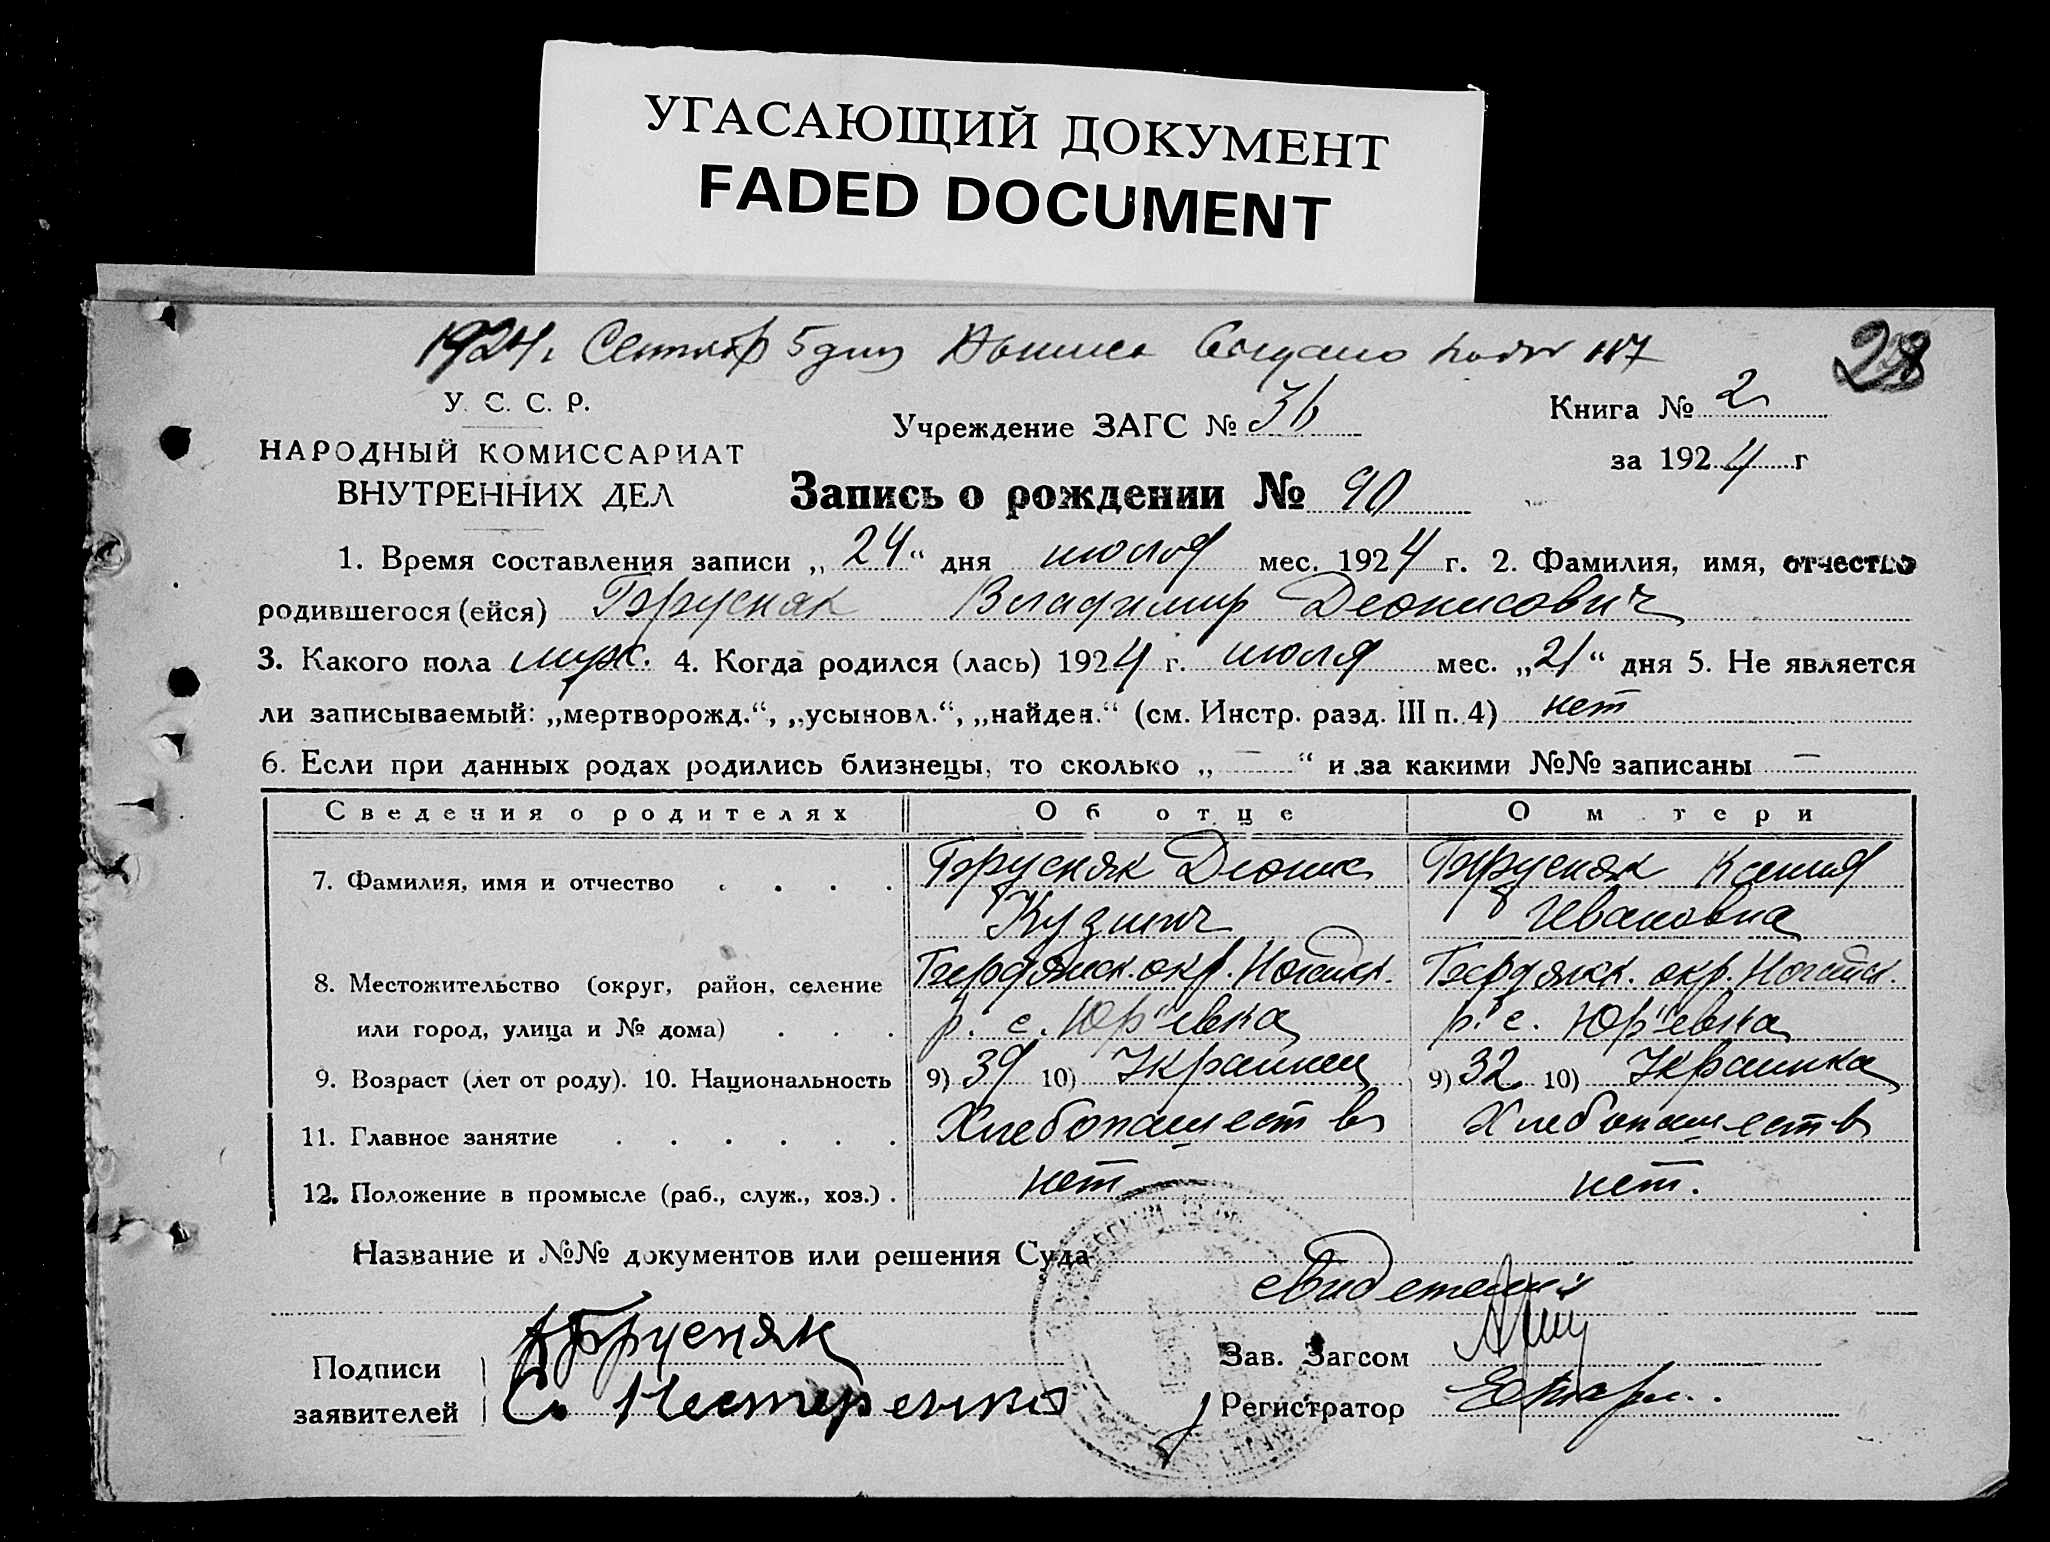 УГАСАЮЩИЙ ДОКУМЕНТ
FADED DOCUMENT
1924 г. 5 дня № 117
28
У. С. С. Р.
НАРОДНЫЙ КОМИССАРИАТ
ВНУТРЕННИХ ДЕЛ
Учреждение ЗАГС № 36
Книга № 2
за 1924 г
Запись о рождении № 90
1. Время составления записи „24“ дня июля мес. 1924 г. 2. Фамилия, имя, отчество
родившегося (ейся) Брусняк Владимир Деонисович
3. Какого пола муж. 4. Когда родился (лась) 1924 г. июля мес. „21“ дня 5. Не является
ли записываемый: „мертворожд.“, „усыновл.“, „найден.“ (см. Инстр. разд. III п. 4) нет
6. Если при данных родах родились близнецы, то сколько „—“ и за какими №№ записаны —
Сведения о родителях Об отце О м тери
7. Фамилия, имя и отчество . . . . Брусняк Деонис Брусняк Ксения
Кузмич Ивановна
8. Местожительство (округ, район, селение Бердянск. окр. Ногайск. Бердянск. окр. Ногайск.
или город, улица и № дома) . . . р. с. Юр"евка р. с. Юр"евка
9. Возраст (лет от роду). 10. Национальность 9) 39 10) Украинец 9) 32 10) Украинка
11. Главное занятие . . . . . . Хлебопашеств Хлебопашеств
12. Положение в промысле (раб., служ., хоз.) . нет нет.
Название и №№ документов или решения Суда
свидетели
Подписи
заявителей
Брусняк
С. Нестеренко
Зав. Загсом
Регистратор